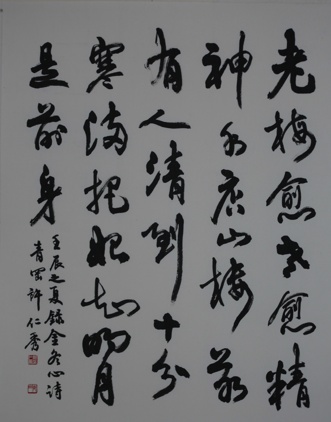 老梅愈老愈精
神水店山樓若
有人清到十分
寒滿把始知明月
是前身
壬辰之夏錄金冬心詩
許仁秀